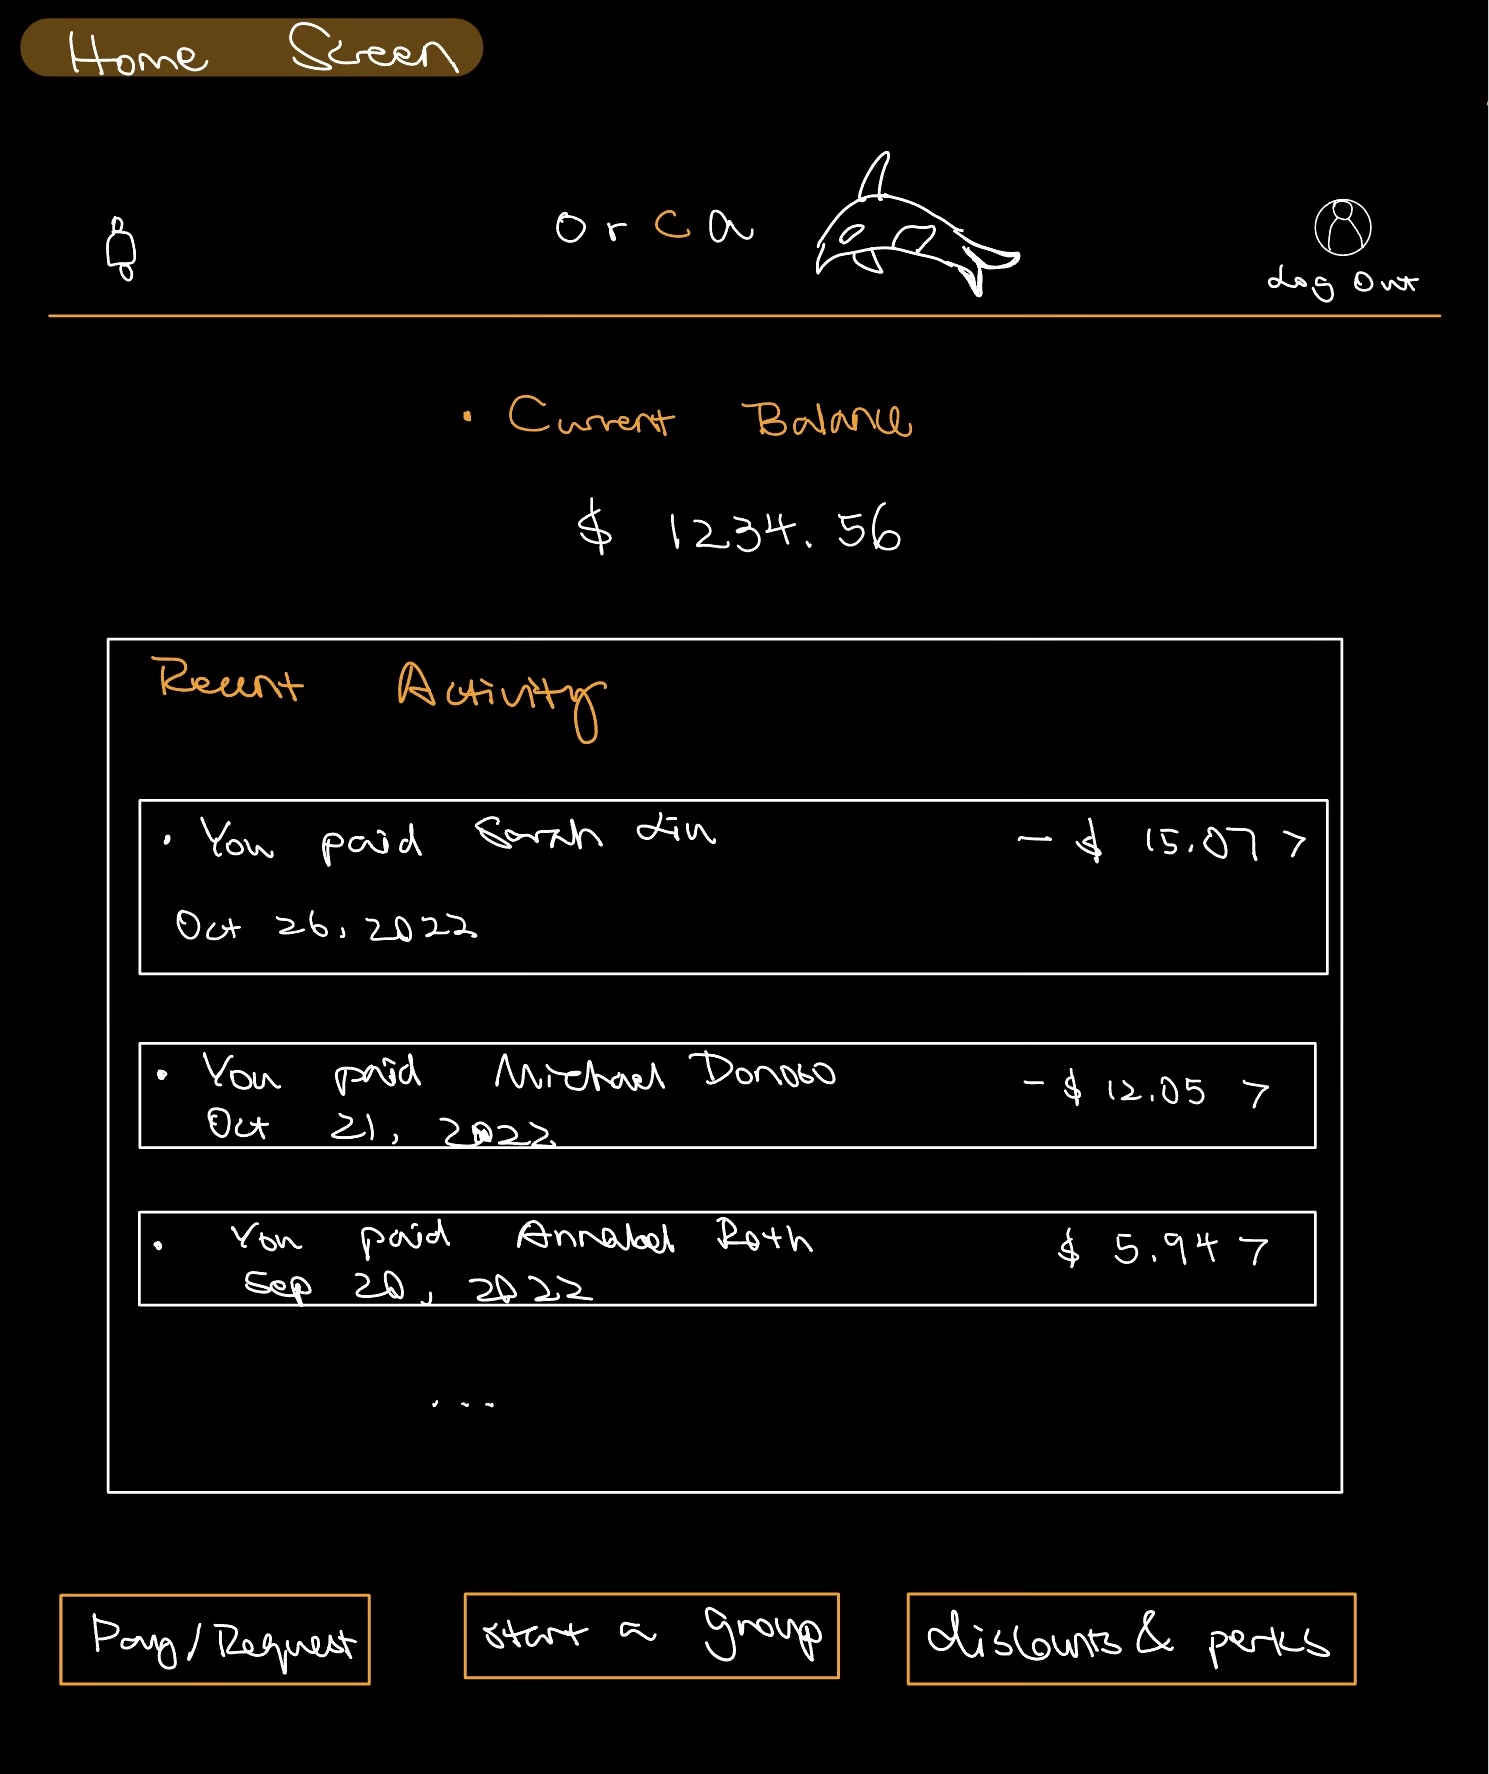 Home Screen
orca
Log Out
• Current Balance
$ 1234.56
Recent Activity
• You paid Sarah Lin - $ 15.07 >
Oct 26, 2022
• You paid Michael Donoso - $ 12.05 >
Oct 21, 2022
• You paid Annabel Roth $ 5.94 >
Sep 20, 2022
...
Pay/Request
start a group
discounts & perks